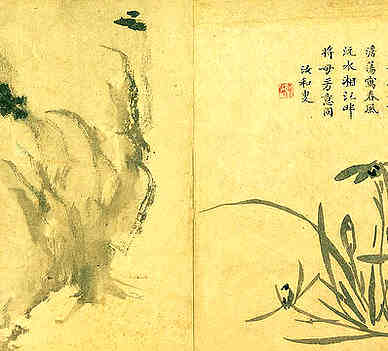 澹蕩寫春風
沅水湘江畔
將毋芳意同
汝和叟